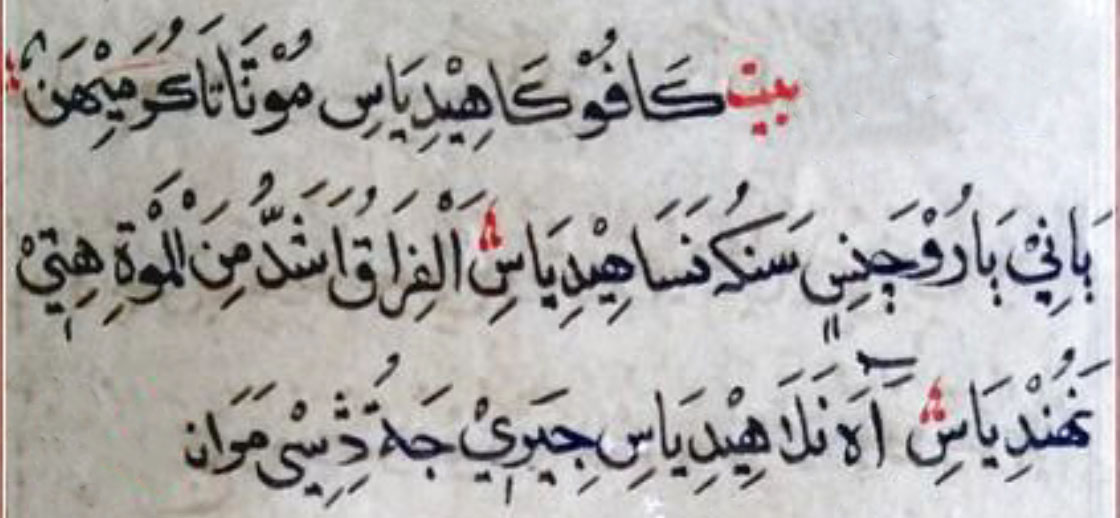 بيت كَافُوْ كَاهِيْدِيَاسِ مُوْنَّا تَاكُرَ مِيْهَنِ
بَانِيْ بَارُوْجَنِسِ سَنكُه نَسَاهِيْدِيَاسِ اَلْفِرَاقُ اَشَدُّ مِنَ الْمَوْةِ هِتِيْ
نَهُنْدِيَاسِ آهَ نَلَاهِيْدِيَاسِ جِيَرِيْ جَةُ ذِسِيْ مَوَانِ